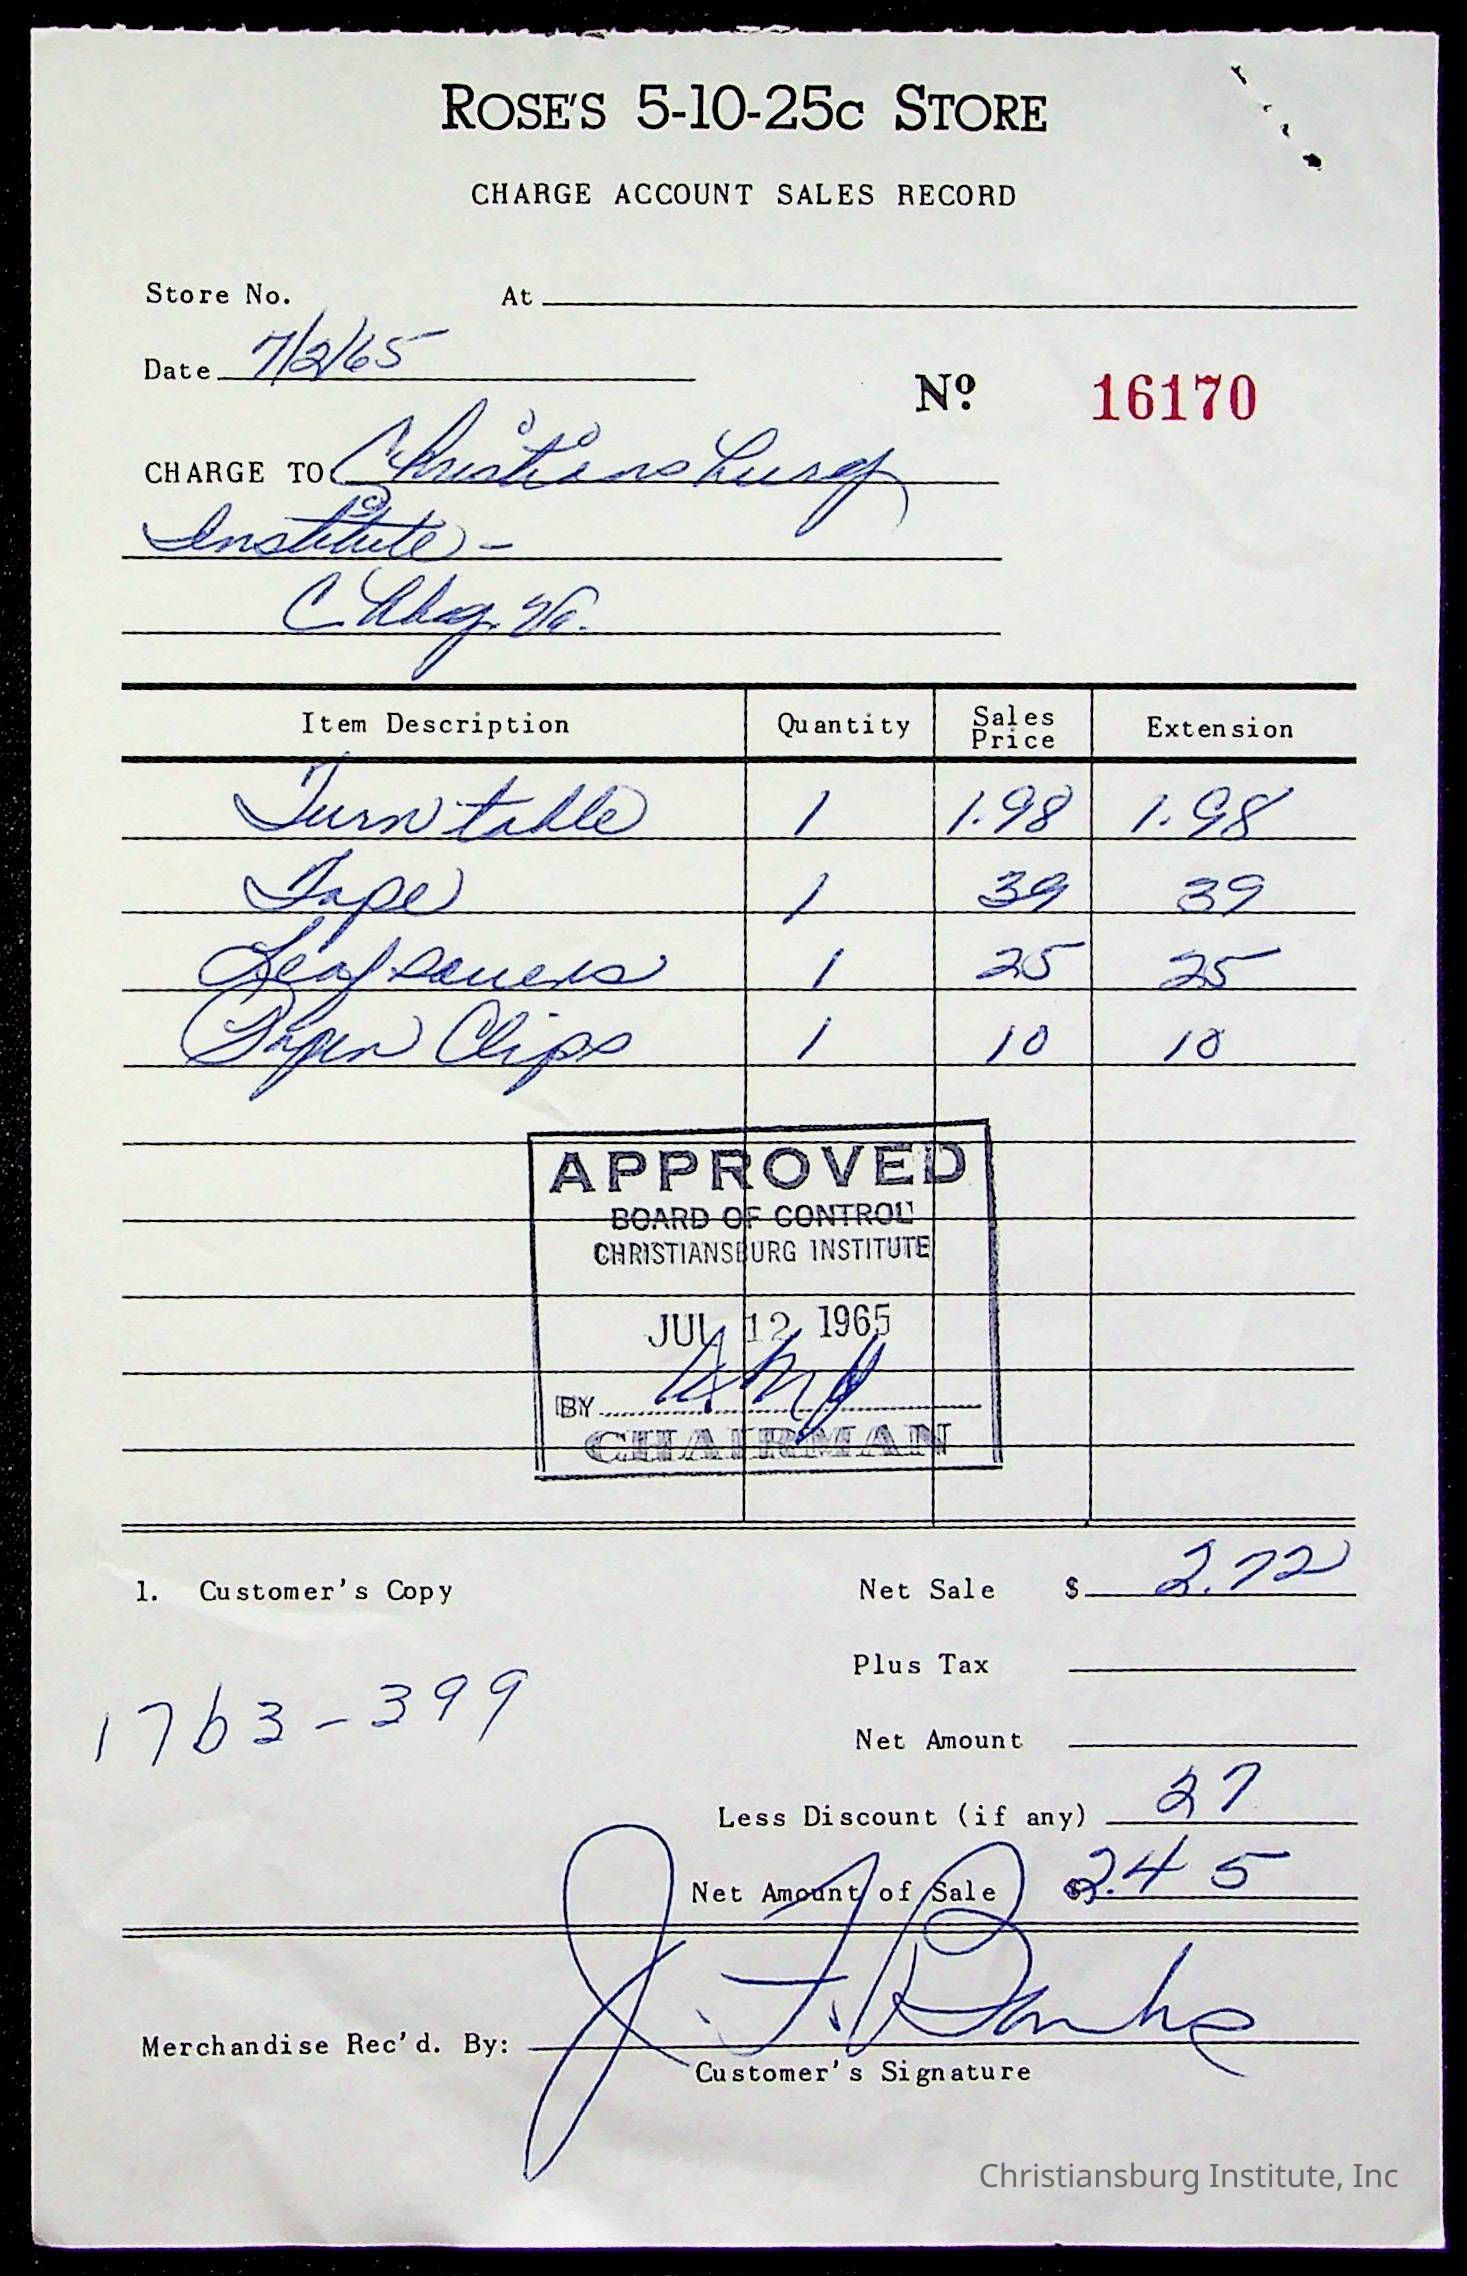 ROSE'S 5-10-25c STORE
CHARGE ACCOUNT SALES RECORD
Store No. At
Date 7/2/65
Nº 16170
CHARGE TO Christiansburg
Institute -
C. Xbg. Va.
Item Description Quantity Sales Price Extension
Turn table 1 1.98 1.98
Tape 1 39 39
Leaf savers 1 25 25
Paper Clips 1 10 10
APPROVED
BOARD OF CONTROL
CHRISTIANSBURG INSTITUTE
JUL 12 1965
BY
CHAIRMAN
1. Customer's Copy Net Sale $ 2.72
Plus Tax
1763-399
Net Amount
Less Discount (if any) 27
Net Amount of Sale $2.45
Merchandise Rec'd. By: J. F. Banks
Customer's Signature
Christiansburg Institute, Inc